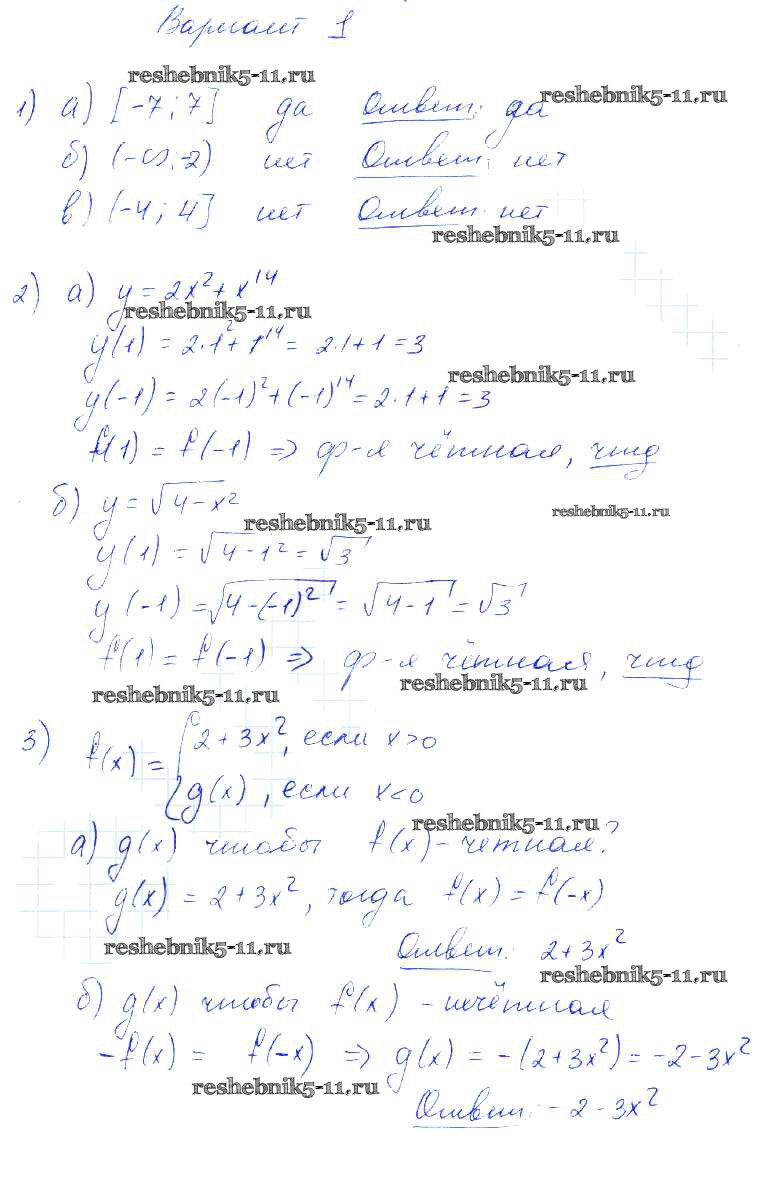 Вариант 1
reshebnik5-11.ru
1) а) [-7; 7] да Ответ: да
reshebnik5-11.ru
б) (-∞; -2) нет Ответ: нет
в) (-4; 4] нет Ответ: нет
reshebnik5-11.ru
2) а) y = 2x² + x¹⁴
reshebnik5-11.ru
y(1) = 2·1² + 1¹⁴ = 2·1+1 = 3
reshebnik5-11.ru
y(-1) = 2(-1)² + (-1)¹⁴ = 2·1+1 = 3
f(1) = f(-1) => ф-я чётная, чтд
б) y = √4-x²
reshebnik5-11.ru
reshebnik5-11.ru
y(1) = √4-1² = √3
y(-1) = √4-(-1)² = √4-1 = √3
f(1) = f(-1) => ф-я чётная, чтд
reshebnik5-11.ru
reshebnik5-11.ru
3) f(x) = { 2+3x², если x>0
g(x), если x<0
reshebnik5-11.ru
а) g(x) чтобы f(x) - четная?
g(x) = 2+3x², тогда f(x) = f(-x)
reshebnik5-11.ru
Ответ: 2+3x²
reshebnik5-11.ru
б) g(x) чтобы f(x) - нечётная
-f(x) = f(-x) => g(x) = -(2+3x²) = -2-3x²
reshebnik5-11.ru
Ответ: -2-3x²